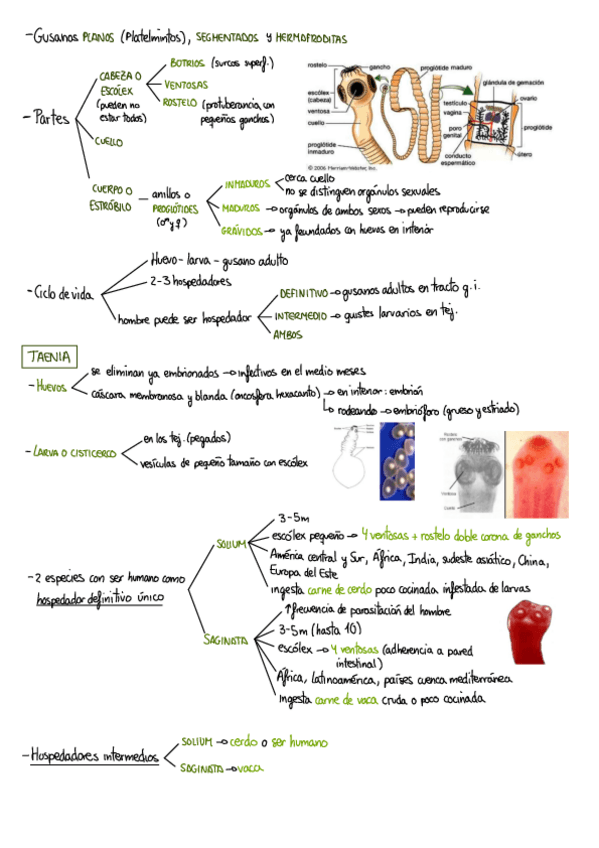 - Gusanos PLANOS (Platelmintos), SEGMENTADOS y HERMAFRODITAS
- Partes
CABEZA O
ESCÓLEX
(pueden no
estar todos)
BOTRIOS (surcos superf.)
VENTOSAS
ROSTELO (protuberancia con
pequeños ganchos)
CUELLO
CUERPO O
ESTRÓBILO
anillos o
PROGLÓTIDES
(♂ y ♀)
INMADUROS
cerca cuello
no se distinguen orgánulos sexuales
MADUROS → orgánulos de ambos sexos → pueden reproducirse
GRÁVIDOS → ya fecundados con huevos en interior
rostelo
gancho
proglótide maduro
escólex
(cabeza)
ventosa
cuello
proglótide
inmaduro
glándula de gemación
testículo
ovario
vagina
proglótide
poro
genital
conducto
espermático
útero
© 2006 Merriam-Webster, Inc.
- Ciclo de vida
Huevo - larva - gusano adulto
2-3 hospedadores
hombre puede ser hospedador
DEFINITIVO → gusanos adultos en tracto g.i.
INTERMEDIO → quistes larvarios en tej.
AMBOS
TAENIA
- HUEVOS
se eliminan ya embrionados → infectivos en el medio meses
cáscara membranosa y blanda (oncosfera hexacanto) → en interior: embrión
↳ rodeando → embrióforo (grueso y estriado)
- LARVA O CISTICERCO
en los tej. (pegados)
vesículas de pequeño tamaño con escólex
Rostelo
con ganchos
Ventosa
Cuello
- 2 especies con ser humano como
hospedador definitivo único
SOLIUM
3-5m
escólex pequeño → 4 ventosas + rostelo doble corona de ganchos
América central y Sur, África, India, sudeste asiático, China,
Europa del Este
ingesta carne de cerdo poco cocinada infestada de larvas
SAGINATA
↑frecuencia de parasitación del hombre
3-5m (hasta 10)
escólex → 4 ventosas (adherencia a pared
intestinal)
África, Latinoamérica, países cuenca mediterránea
Ingesta carne de vaca cruda o poco cocinada
- Hospedadores intermedios
SOLIUM → cerdo o ser humano
SAGINATA → vaca